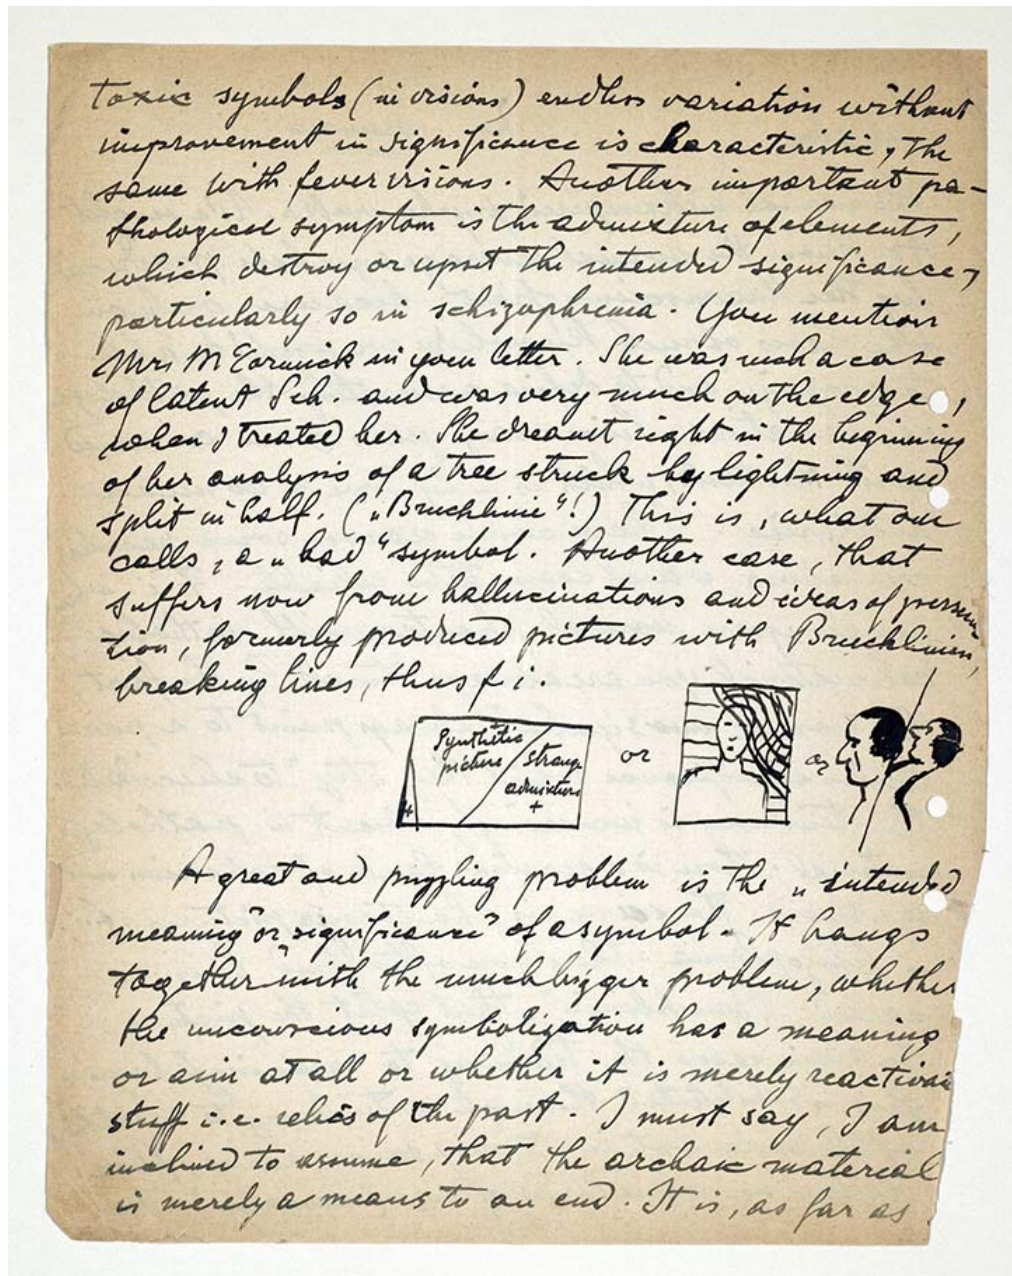 toxic symbols (in visions) endless variation without
improvement in significance is characteristic, the
same with fever visions. Another important pa-
thological symptom is the admixture of elements,
which destroy or upset the intended significance,
particularly so in schizophrenia. You mention
Mrs McCormick in your letter. She was such a case
of latent Sch. and was very much on the edge,
when I treated her. She dreamt right in the beginning
of her analysis of a tree struck by lightning and
split in half. („Bruchlinie"!) This is, what one
calls, a „bad" symbol. Another case, that
suffers now from hallucinations and ideas of persecu-
tion, formerly produced pictures with Bruchlinien,
breaking lines, thus f i.
Synthetic
picture
strange
admixture
+
+
or
or
A great and puzzling problem is the „intended
meaning" or „significance" of a symbol. It hangs
together with the much bigger problem, whether
the unconscious symbolization has a meaning
or aim at all or whether it is merely reactivated
stuff i.e. relics of the past. I must say, I am
inclined to assume, that the archaic material
is merely a means to an end. It is, as far as